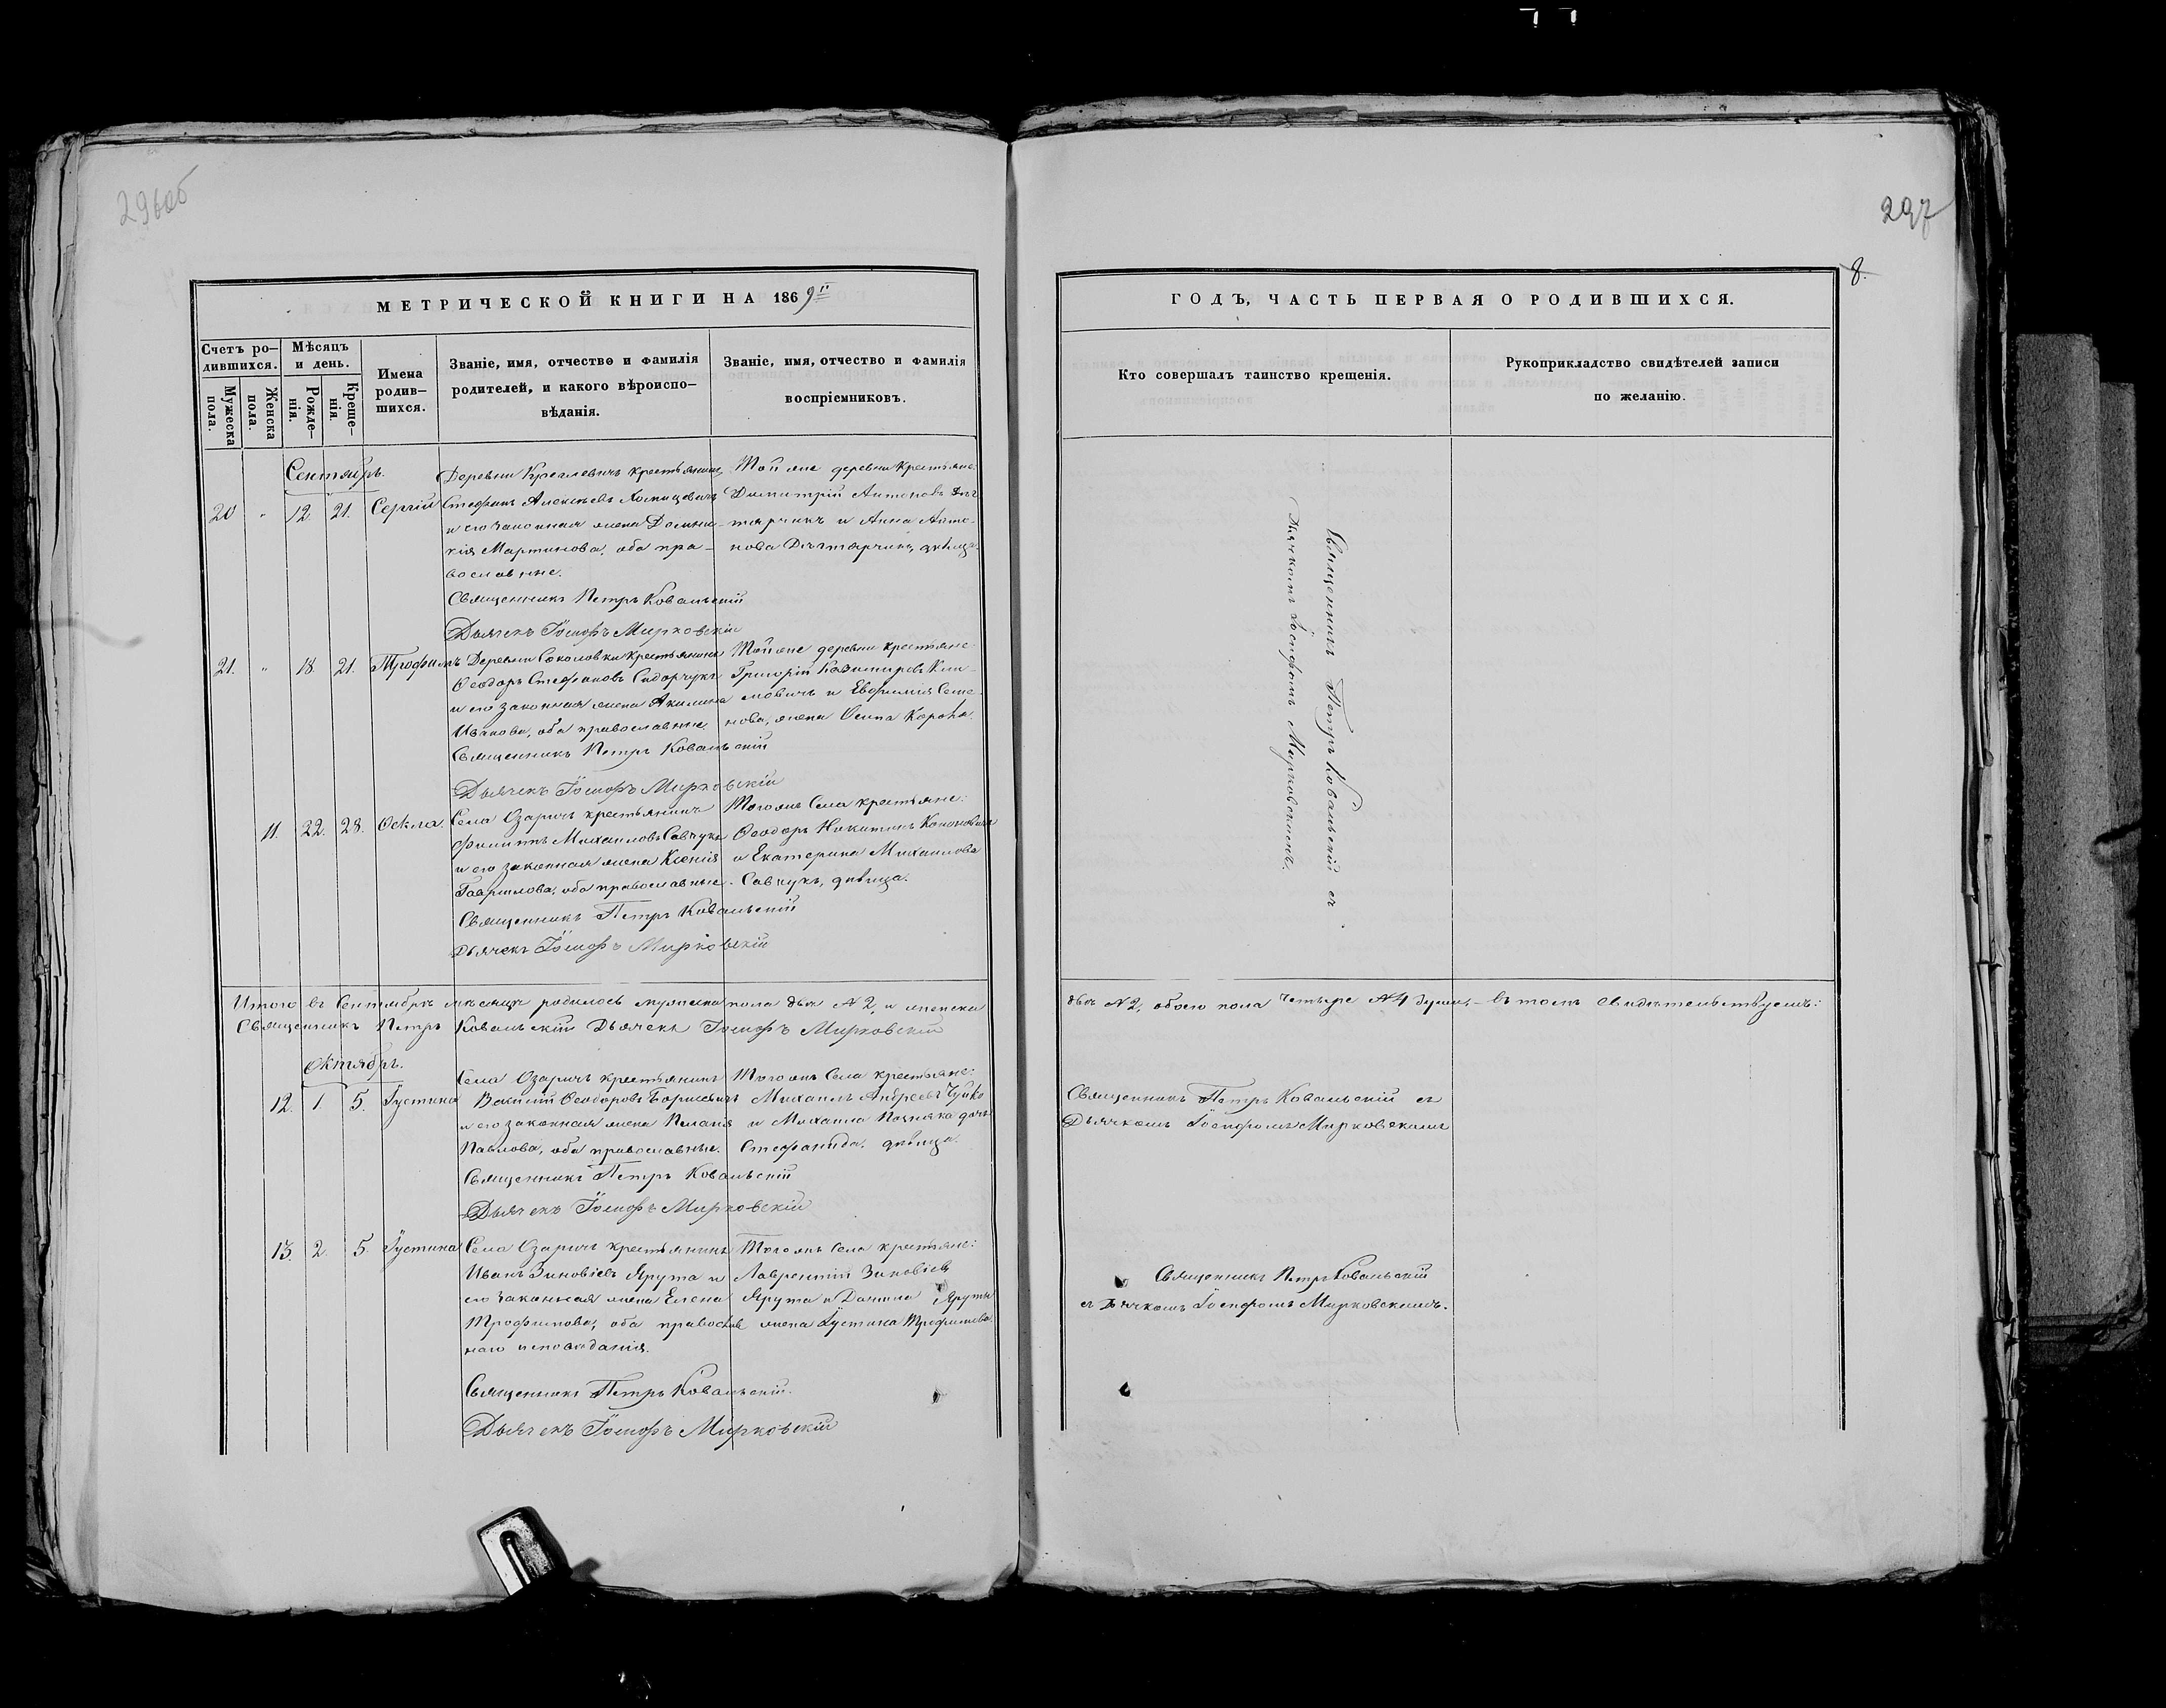 296об
297
8.
МЕТРИЧЕСКОЙ КНИГИ НА 1869й
Счетъ ро-
дившихся.
Мужеска
пола.
Женска
пола.
Мѣсяцъ
и день.
Рожде-
нія.
Креще-
нія.
Имена
родив-
шихся.
Званіе, имя, отчество и фамилія
родителей, и какого вѣроиспо-
вѣданія.
Званіе, имя, отчество и фамилія
воспріемниковъ.
Сентябрь.
20 " 12. 21. Сергій
Деревни крестьянинъ
Стефанъ Алексѣевъ
и его законная жена Домни-
кія Мартинова, оба пра-
вославные.
Священникъ Петръ Ковальскій
Дьячекъ Іосифъ Мирковскій
Той же деревни крестьяне:
Димитрій Антоновъ
и Анна Анто-
нова дѣвица.
21. " 18 21. Трофимъ
Деревни Соколовки крестьянинъ
Ѳеодоръ Стефановъ Сидорчукъ
и его законная жена Акилина
Иванова, оба православные.
Священникъ Петръ Ковальскій
Дьячекъ Іосифъ Мирковскій
Той же деревни крестьяне
Григорій Казимировъ Кли-
мовичъ и Евфимія Семе-
нова, жена Осипа
11. 22. 28. Ѳекла.
Села Озаричъ крестьянинъ
Филиппъ Михаиловъ Савчукъ
и его законная жена Ксенія
Гаврилова, оба православные.
Священникъ Петръ Ковальскій
Дьячекъ Іосифъ Мирковскій
Того же Села крестьяне:
Ѳеодоръ Никитинъ Кононовичъ
и Екатерина Михаилова
Савчукъ, дѣвица.
Итого въ Сентябрѣ мѣсяцѣ родилось мужеска пола два № 2, и женска
Священникъ Петръ Ковальскій Дьячекъ Іосифъ Мирковскій
Октябрь.
12. 1. 5. Іустина
Села Озаричъ крестьянинъ
Василій Ѳеодоровъ Борисевичъ
и его законная жена Пелагія
Павлова, оба православные.
Священникъ Петръ Ковальскій
Дьячекъ Іосифъ Мирковскій
Того же Села крестьяне:
Михаилъ Андреевъ Чуйко
и Михаила дочь
Стефанида, дѣвица.
13. 2. 5. Іустина
Села Озаричъ крестьянинъ
Иванъ Зиновіевъ Ярута и
его законная жена Елена
Трофимова, оба православ
наго исповѣданія.
Священникъ Петръ Ковальскій.
Дьячекъ Іосифъ Мирковскій
Того же Села крестьяне:
Лаврентій Зиновіевъ
Ярута и Данила Яруты
жена Іустина Трофимова.
ГОДЪ, ЧАСТЬ ПЕРВАЯ О РОДИВШИХСЯ.
Кто совершалъ таинство крещенія.
Рукоприкладство свидѣтелей записи
по желанію.
Священникъ Петръ Ковальскій съ
Дьячкомъ Іосифомъ Мирковскимъ.
два № 2, обоего пола четыре № 4 души, въ томъ свидѣтельствуемъ:
Священникъ Петръ Ковальскій съ
Дьячкомъ Іосифомъ Мирковскимъ
Священникъ Петръ Ковальскій
съ Дьячкомъ Іосифомъ Мирковскимъ.